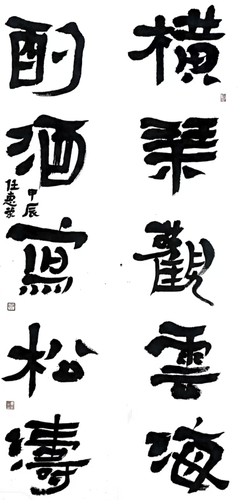 橫琴觀雲海
酌酒寫松濤
甲辰
任惠榮